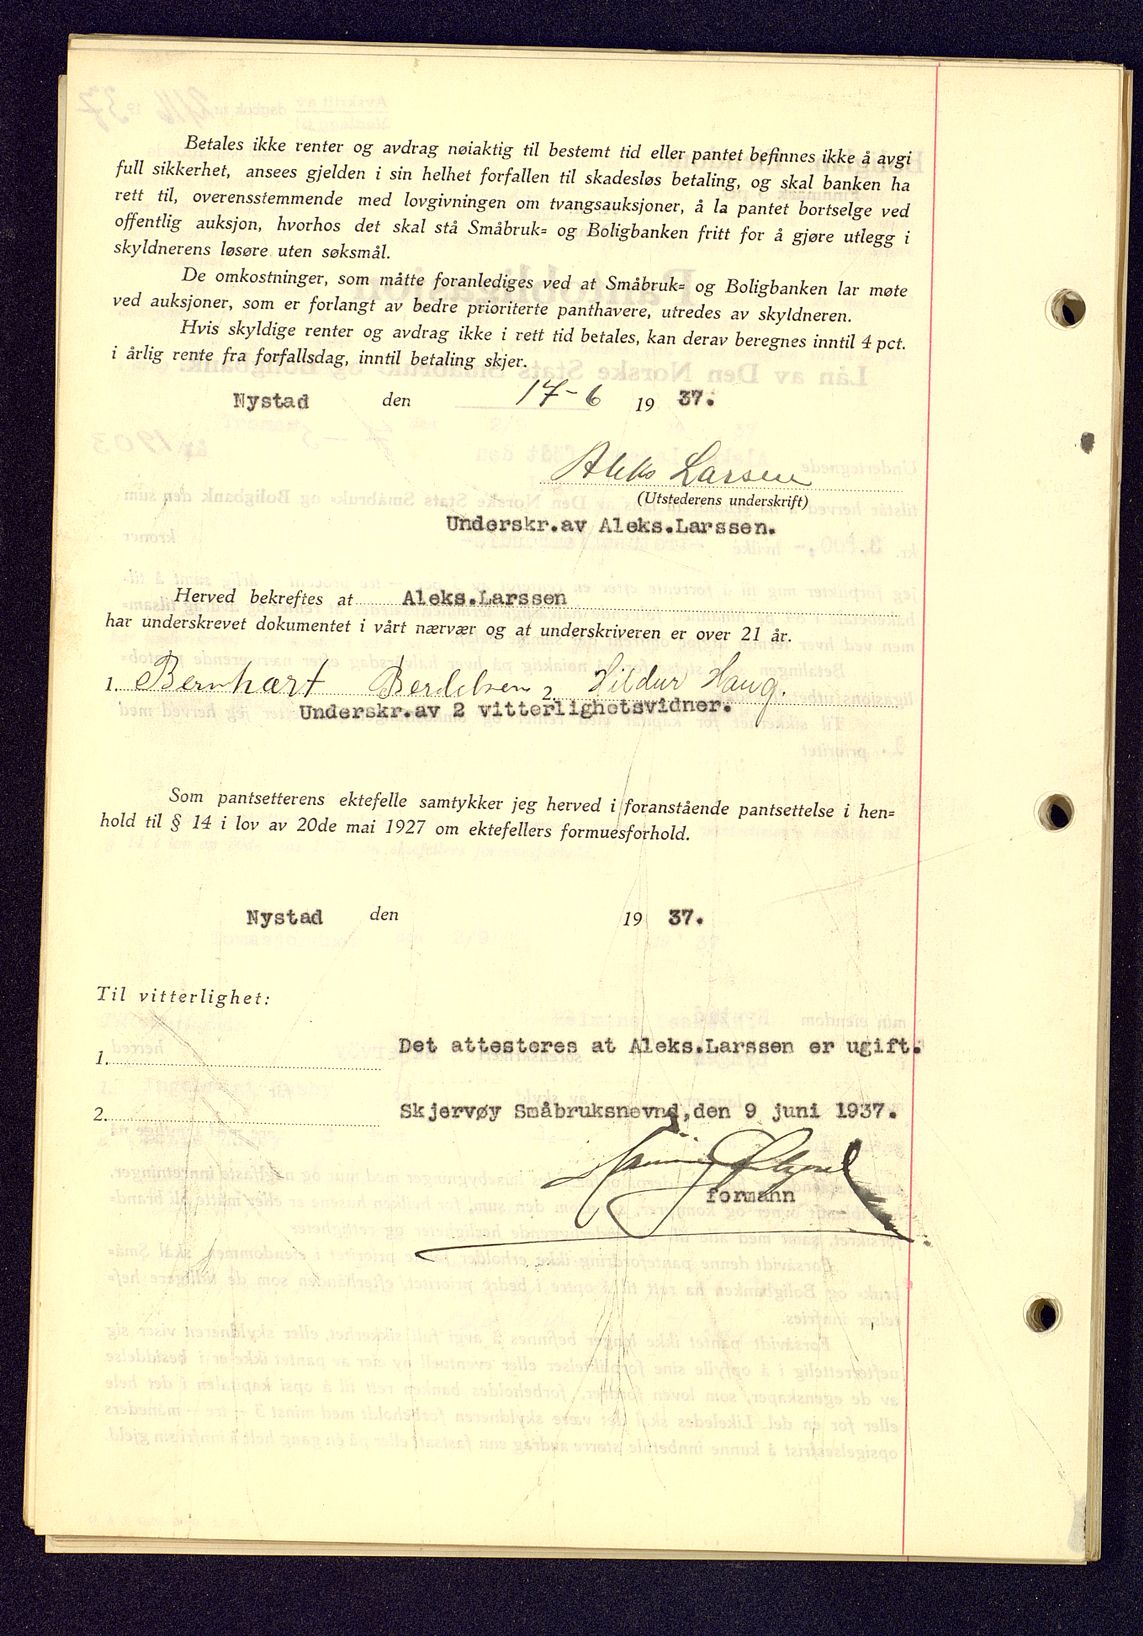 Betales ikke renter og avdrag nøiaktig til bestemt tid eller pantet befinnes ikke å avgi
full sikkerhet, ansees gjelden i sin helhet forfallen til skadesløs betaling, og skal banken ha
rett til, overensstemmende med lovgivningen om tvangsauksjoner, å la pantet bortselge ved
offentlig auksjon, hvorhos det skal stå Småbruk= og Boligbanken fritt for å gjøre utlegg i
skyldnerens løsøre uten søksmål.
De omkostninger, som måtte foranlediges ved at Småbruk= og Boligbanken lar møte
ved auksjoner, som er forlangt av bedre prioriterte panthavere, utredes av skyldneren.
Hvis skyldige renter og avdrag ikke i rett tid betales, kan derav beregnes inntil 4 pct.
i årlig rente fra forfallsdag, inntil betaling skjer.
Nystad den 17-6 19 37.
Aleks Larsen
(Utstederens underskrift)
Underskr.av Aleks.Larssen.
Herved bekreftes at Aleks.Larssen
har underskrevet dokumentet i vårt nærvær og at underskriveren er over 21 år.
1. Bernhart Berdelsen 2. Hildur Haug.
Underskr.av 2 vitterlighetsvidner.
Som pantsetterens ektefelle samtykker jeg herved i foranstående pantsettelse i hen=
hold til § 14 i lov av 20de mai 1927 om ektefellers formuesforhold.
Nystad den 19 37.
Til vitterlighet:
1. Det attesteres at Aleks.Larssen er ugift.
2. Skjervøy Småbruksnevnd,den 9 juni 1937.
formann